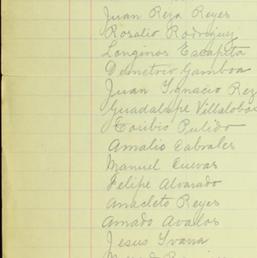 Juan Reza Reyes
Rosalio Rodriguez
Longinos Escapita
Demetrio Gamboa
Juan Ignacio Rey
Guadalupe Villalobos
Toribio Pulido
Amalio Cabrales
Manuel Cuevas
Felipe Alvarado
Anacleto Reyes
Amado Avalos
Jesus Ivana